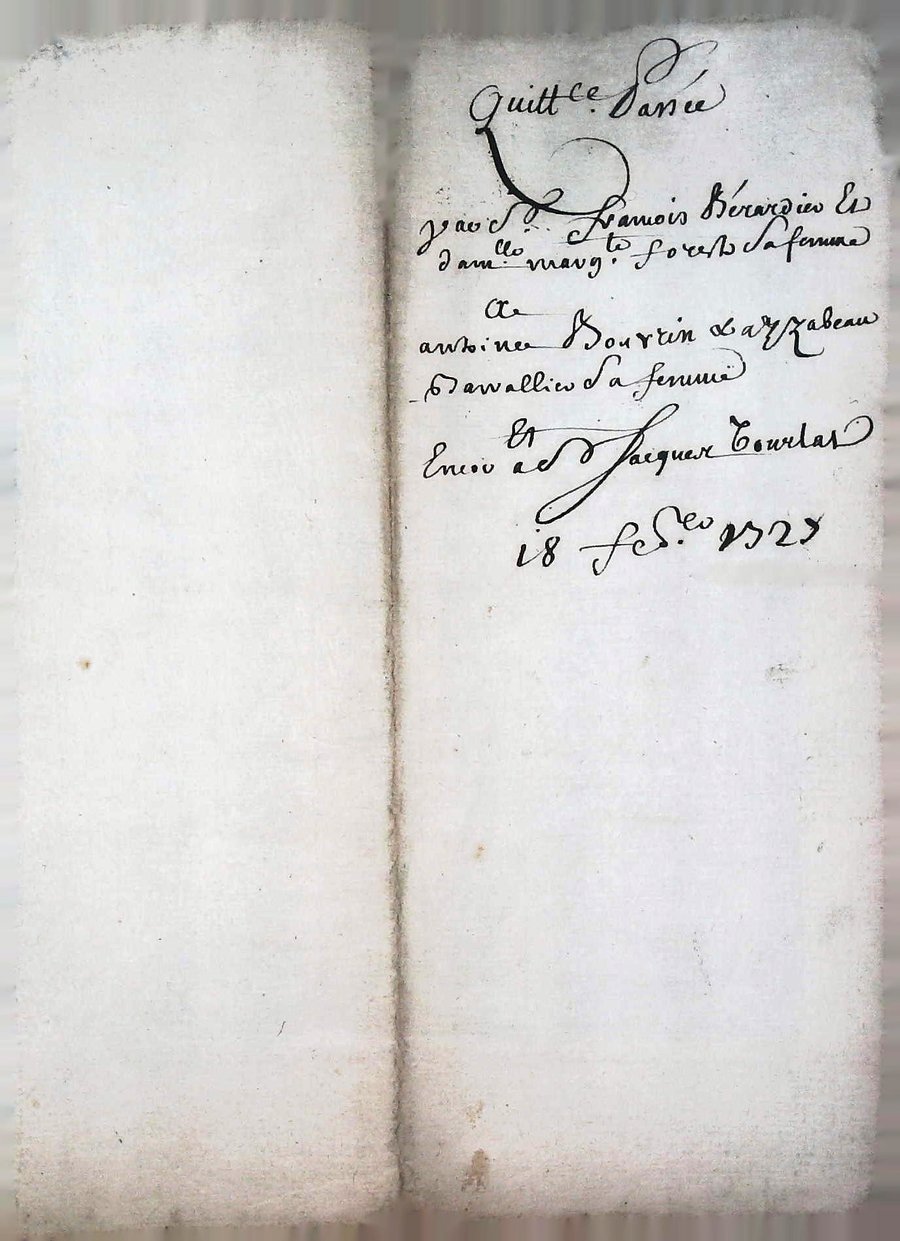 Quittce. Passée
par Sr. françois Bérardier Et
damlle margte. forest Sa femme
a
antoine Bouvein & ayzabeau
Savallier Sa femme
Et
Encor a Sr Jacques Tourlat
18 febr.